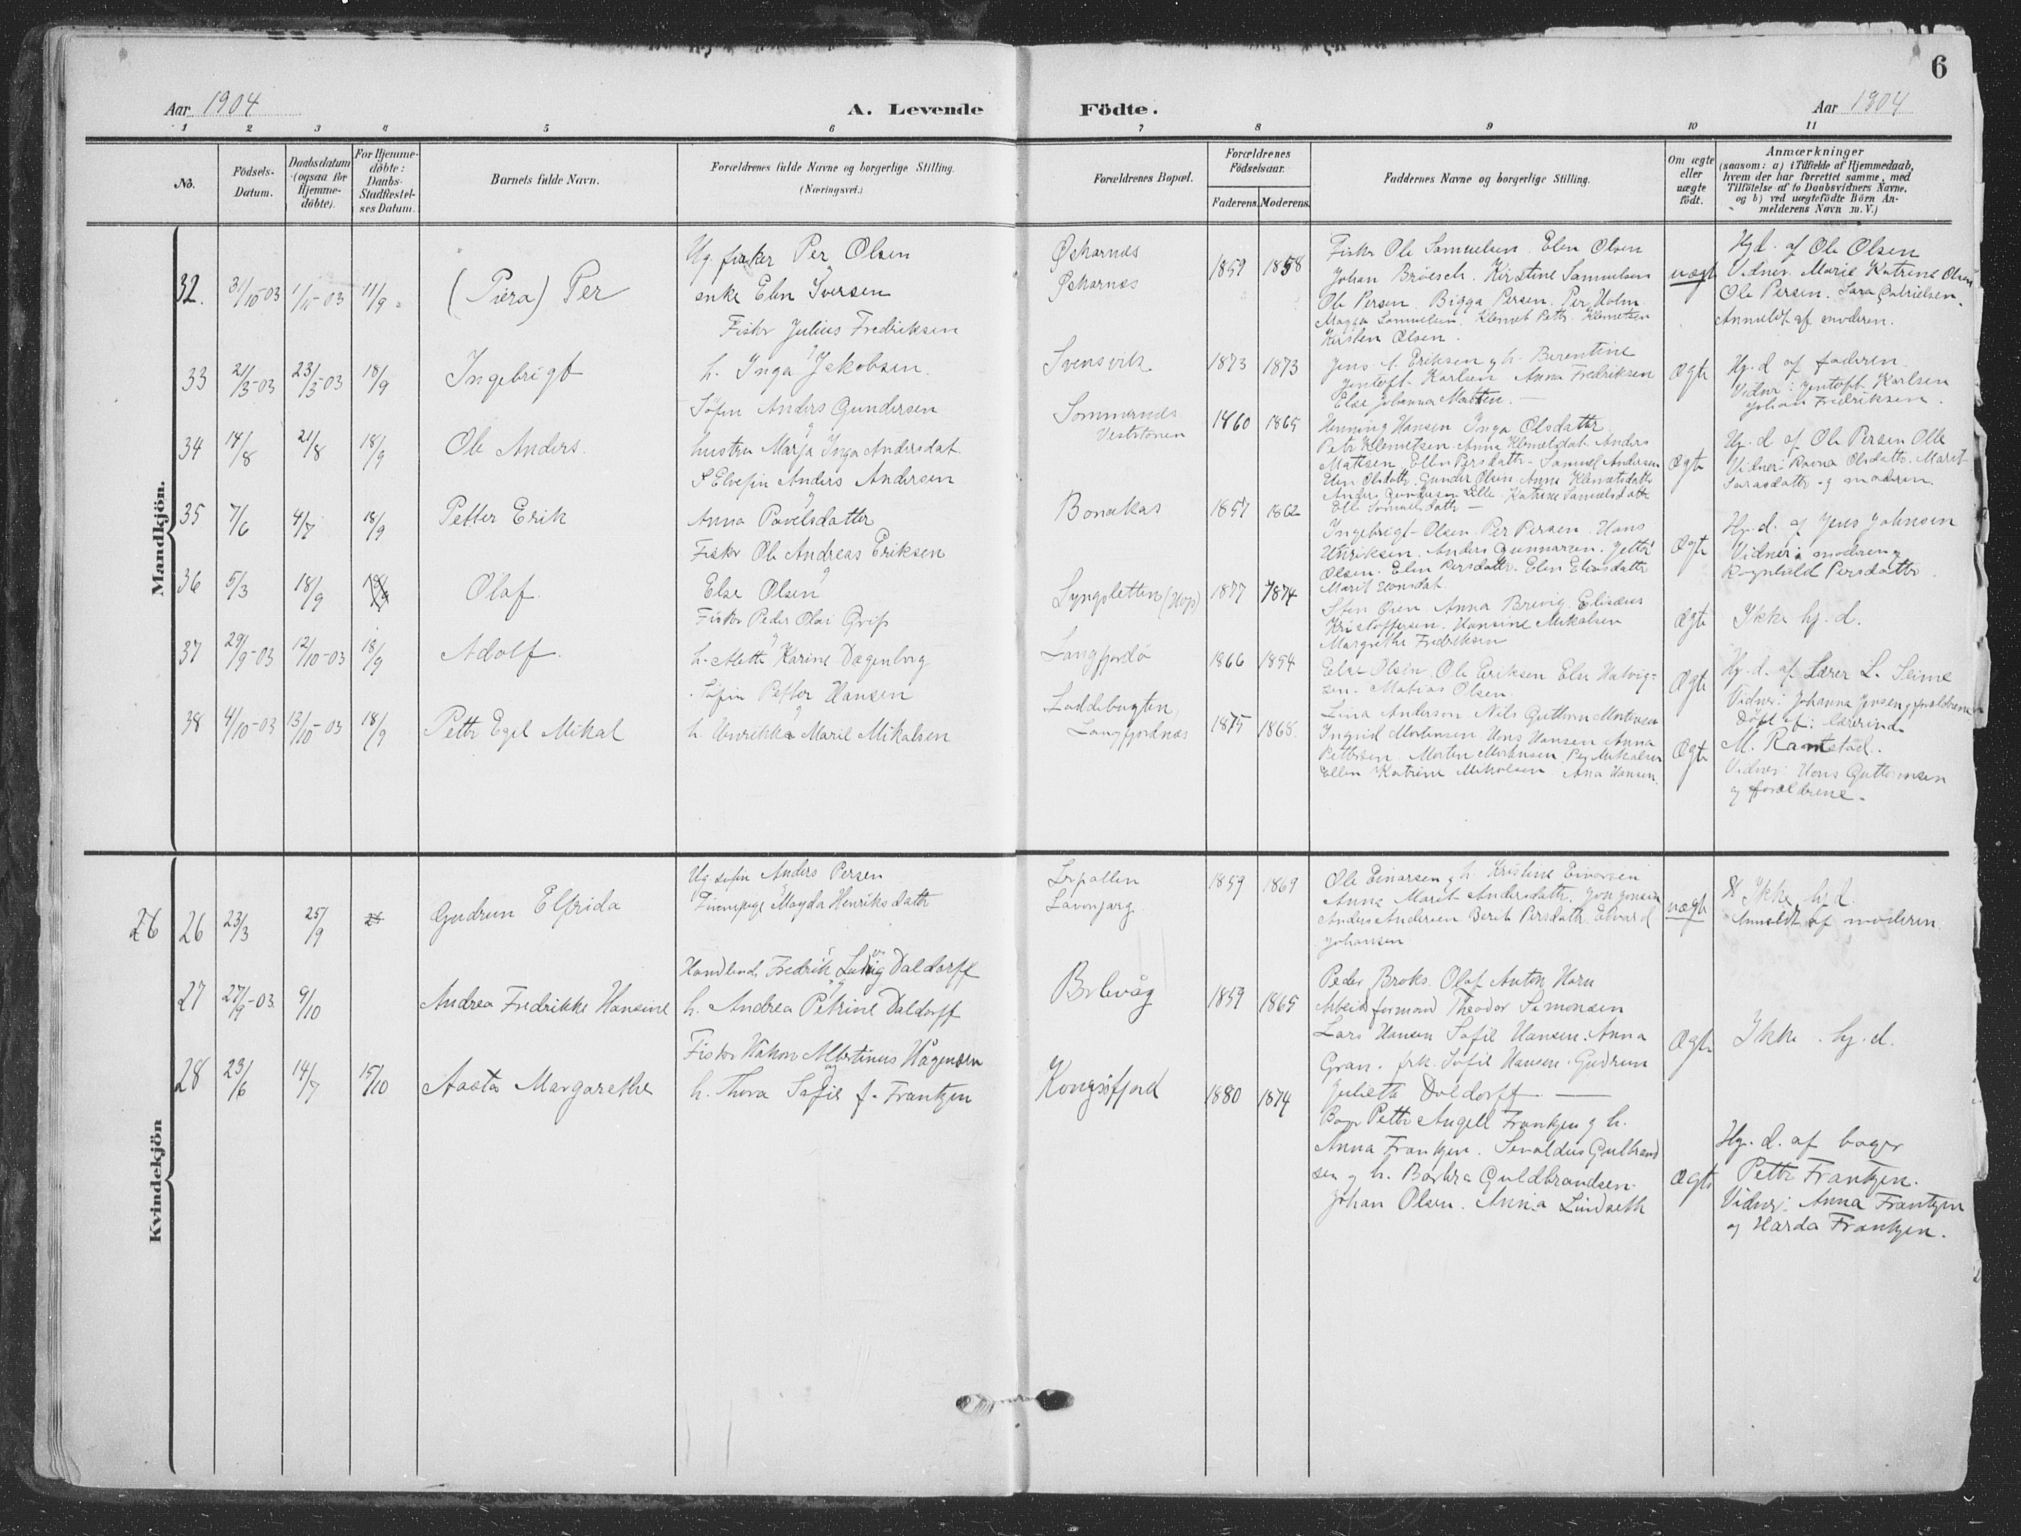 6
Aar 1904
A. Levende
Födte.
Aar 1904
1 2 3 4 5 6 7 8 9 10 11
No.
Födsels-
Datum.
Daabsdatum
(ogsaa for
Hjemme-
döbte).
For Hjemme-
döbte:
Daabs-
Stadfæstel-
ses Datum.
Barnets fulde Navn.
Forældrenes fulde Navne og borgerlige Stilling.
(Næringsvei.)
Forældrenes Bopæl.
Forældrenes
Födselsaar.
Faderens.
Moderens.
Faddernes Navne og borgerlige Stilling.
Om ægte
eller
uægte
födt.
Anmærkninger
(saasom: a) i Tilfælde af Hjemmedaab,
hvem der har forrettet samme, med
Tilföielse af to Daabsvidners Navne,
og b) ved uægtefödte Börn An-
melderens Navn m. V.)
Mandkjön.
32. 31/10-03 1/11-03 11/9 (Piera) Per
Ug. fisker Per Olsen
enke Elen Iversen
Øskarnes
Øskarnes
1859 1858
Fisker Ole Samuelsen. Elen Olsen
Johan Brøesch. Kirstine Samuelsen
Ole Persen. Bigga Persen. Per Holm
Magga Samuelsen. Klemet Petter Klemetsen
Kirsten Olsen.
uægt
Hjd. af Ole Olsen
Vidner: Marie Katrine Olsen
Ole Persen. Sara Gabrielsen.
Anmeldt af moderen.
33 21/3-03 23/5-03 18/9 Ingebrigt
Fisker Julius Fredriksen
h. Inga Jakobsen.
Svensvik
1873 1873
Jens A. Eriksen og h. Berentine
Jentoft Karlsen Anna Fredriksen
Else Johanna
Ægte
Hj.d af faderen
Vidner: Jentoft Karlsen
Johan Fredriksen.
34 14/8 21/8 18/9 Ole Anders.
Søfin Anders Gundersen
hustru Marja Inga Andersdat.
Sommernes
Vestertanen
1860 1865
Henning Hansen Inga Olsdatter
Petter Klemetsen. Anna Klemetsdat. Anders
Mattsen. Ellen Persdatter. Samuel Andersen
Elen Olsdatter. Gunder Olsen Anna Klemetsdatter
Ægte
Hj. d. af Ole Persen Olle
Vidner: Ravna Olsdatter. Marit
Larsdatter og moderen.
35 7/6 4/7 18/9 Petter Erik
S Elvefin Anders Andersen
Anna Pavelsdatter
Bonakas
1857 1862
Anders Gundersen Lille. Katrine Samuelsdatter
Elle Samuelsdatter
Ingebrigt Olsen. Per Persen. Hans
Henriksen. Anders Gunnarsen.
Olsen. Elen Persdatter. Elen Eliasdatter
Marit Hansdat.
Ægte
Hj. d. af Jens Johnsen
Vidner: moderen og
Ragnhild Persdatter.
36 5/3 18/9 Olaf
Fisker Ole Andreas Eriksen
Else Olsen
Lyngsletten (Hop)
1877 1874
Sten Oien Anna Brevig. Elisæus
Kristoffersen. Hansine Mikalsen
Margrethe Fredriksen
Ægte
Ikke hj. d.
37 29/9-03 12/10-03 18/9 Adolf
Fisker Peder Olai Grip
h. Mette Karine Dagenborg
Langfjordø
1866 1854
Else Olsen. Ole Eriksen Elen Halvig-
sen. Mathias Olsen.
Ægte
Hj. d. af Lærer L. Seime
Vidner: Johanna Jensen og forældrene
38 4/10-03 13/10-03 18/9 Petter Egel Mikal
Søfin Petter Hansen
h. Henrikke Marie Mikalsen
Laddebugten,
Langfjordnæs
1875 1865.
Lina Anderson Nils Guttorm Mortensen
Ingrid Mortensen Hans Hansen Anna
Pettersen. Morten Mortensen. Per Mikalsen
Ellen Katrine Mikalsen Ana Hansen.
Ægte
Døpt af: lærerinde
M. Ramstad.
Vidner: Hans Guttormsen
og forældrene.
Kvindekjön
26 26 23/3 25/9 Gudrun Elfrida
Ug søfin Anders Persen
Magda Henriksdatter
Lerpollen
Lavonjarg
1859 1869
Ole Einarsen og h. Kristine Einarsen
Anna Marit Andersdatter. Jon Jonsen
Anders Andersen Berit Persdatter. Edvard
Johansen
uægte
Ikke hj.d.
Anmeldt af moderen
27 27/9-03 9/10 Andrea Fredrikke Hansine
Handlende Fredrik Ludvig Daldorff
h. Andrea Petrine Daldorff
Berlevåg
1859 1865
Peder Broks. Olaf Anton Horn
Arbeidsformand Theodor Simonsen
Lars Hansen Sofie Hansen. Anna
Gran. frk. Sofie Hansen. Gudrun
Juliette Daldorff
Ægte
Ikke hj. d.
28 23/6 14/7 15/10 Aasta Margarethe
Fisker Håkon Albertinius Hågensen
h. Thora Sofie f. Frantzen
Kongsfjord
1880 1874
Bager Petter Angell Frantzen og h.
Anna Frantzen. Sevaldus Gulbrand
sen og h. Barbra Guldbrandsen.
Johan Olsen. Anna Lindseth
Ægte
Hj. d. af bager
Petter Frantzen.
Vidner: Anna Frantzen
og Harda Frantzen.